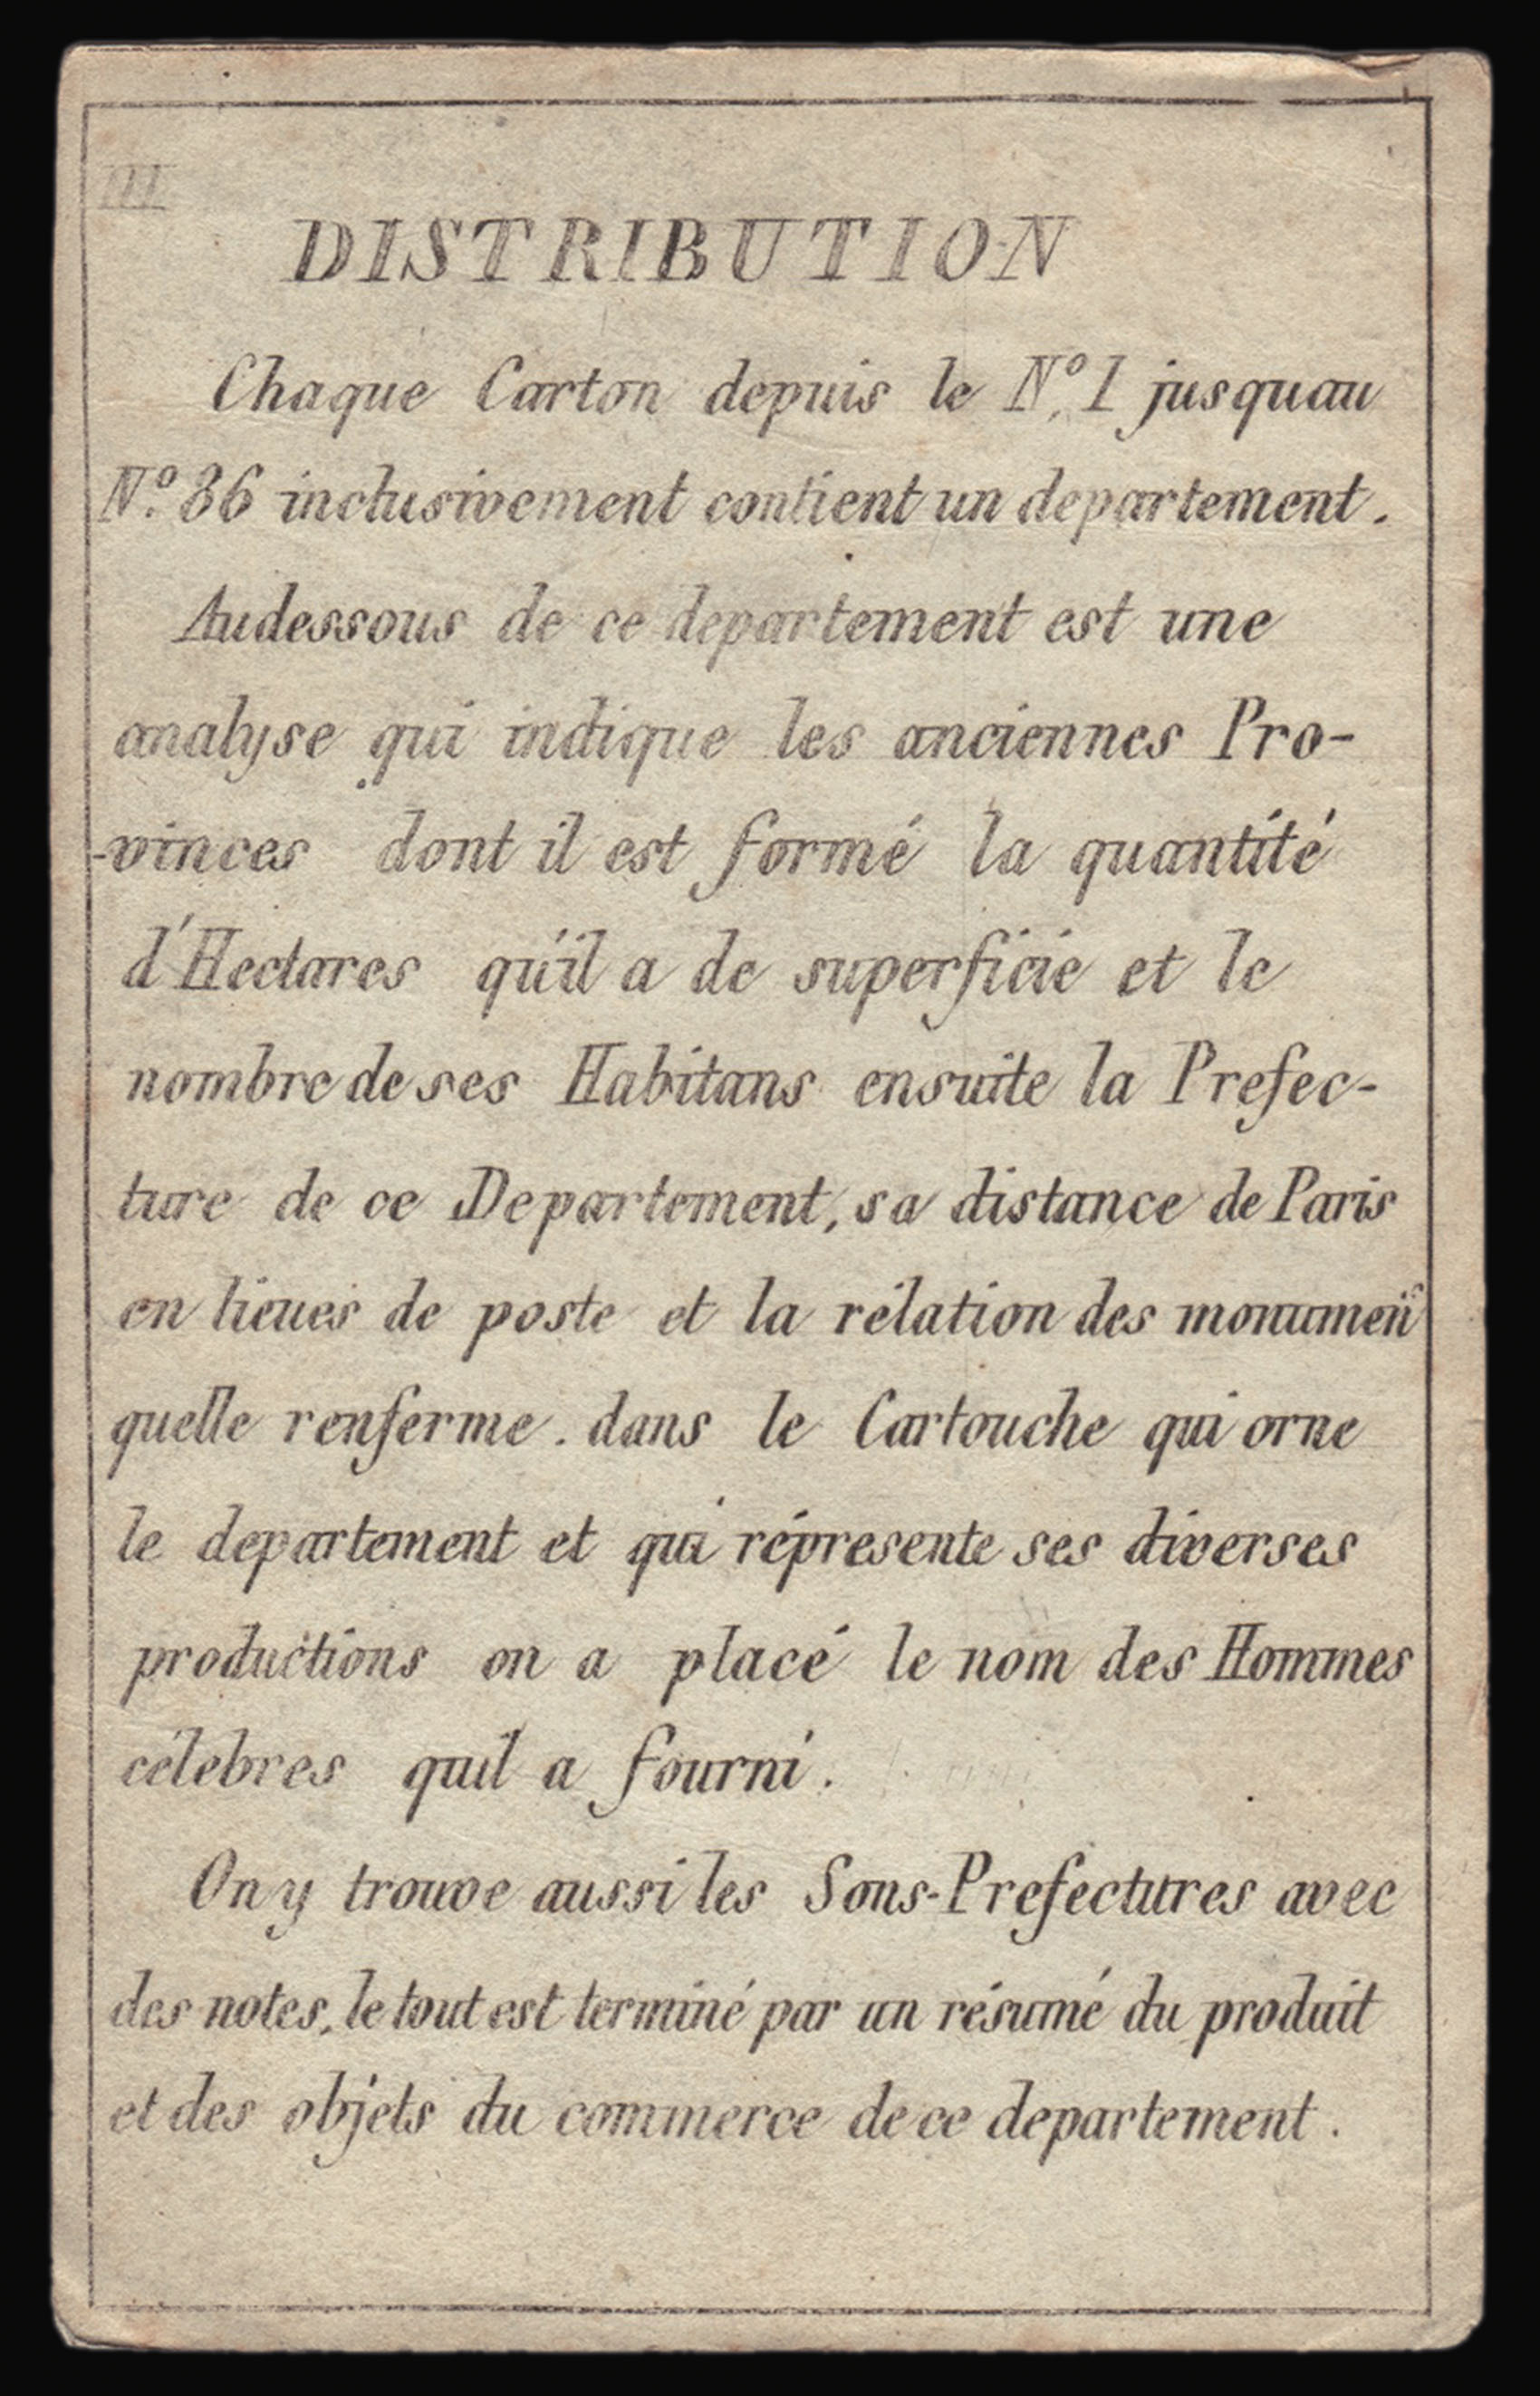 III
DISTRIBUTION
Chaque Carton depuis le N.º 1 jusquau
N.º 86 inclusivement contient un departement.
Audessous de ce departement est une
analyse qui indique les anciennes Pro-
-vinces dont il est formé la quantité
d'Hectares qu'il a de superficie et le
nombre de ses Habitans ensuite la Prefec-
ture de ce Departement, sa distance de Paris
en lieues de poste et la rélation des monumen.ˢ
quelle renferme. dans le Cartouche qui orne
le departement et qui répresente ses diverses
productions on a placé le nom des Hommes
célebres quil a fourni.
On y trouve aussi les Sous-Prefectures avec
des notes, le tout est terminé par un résumé du produit
et des objets du commerce de ce departement.